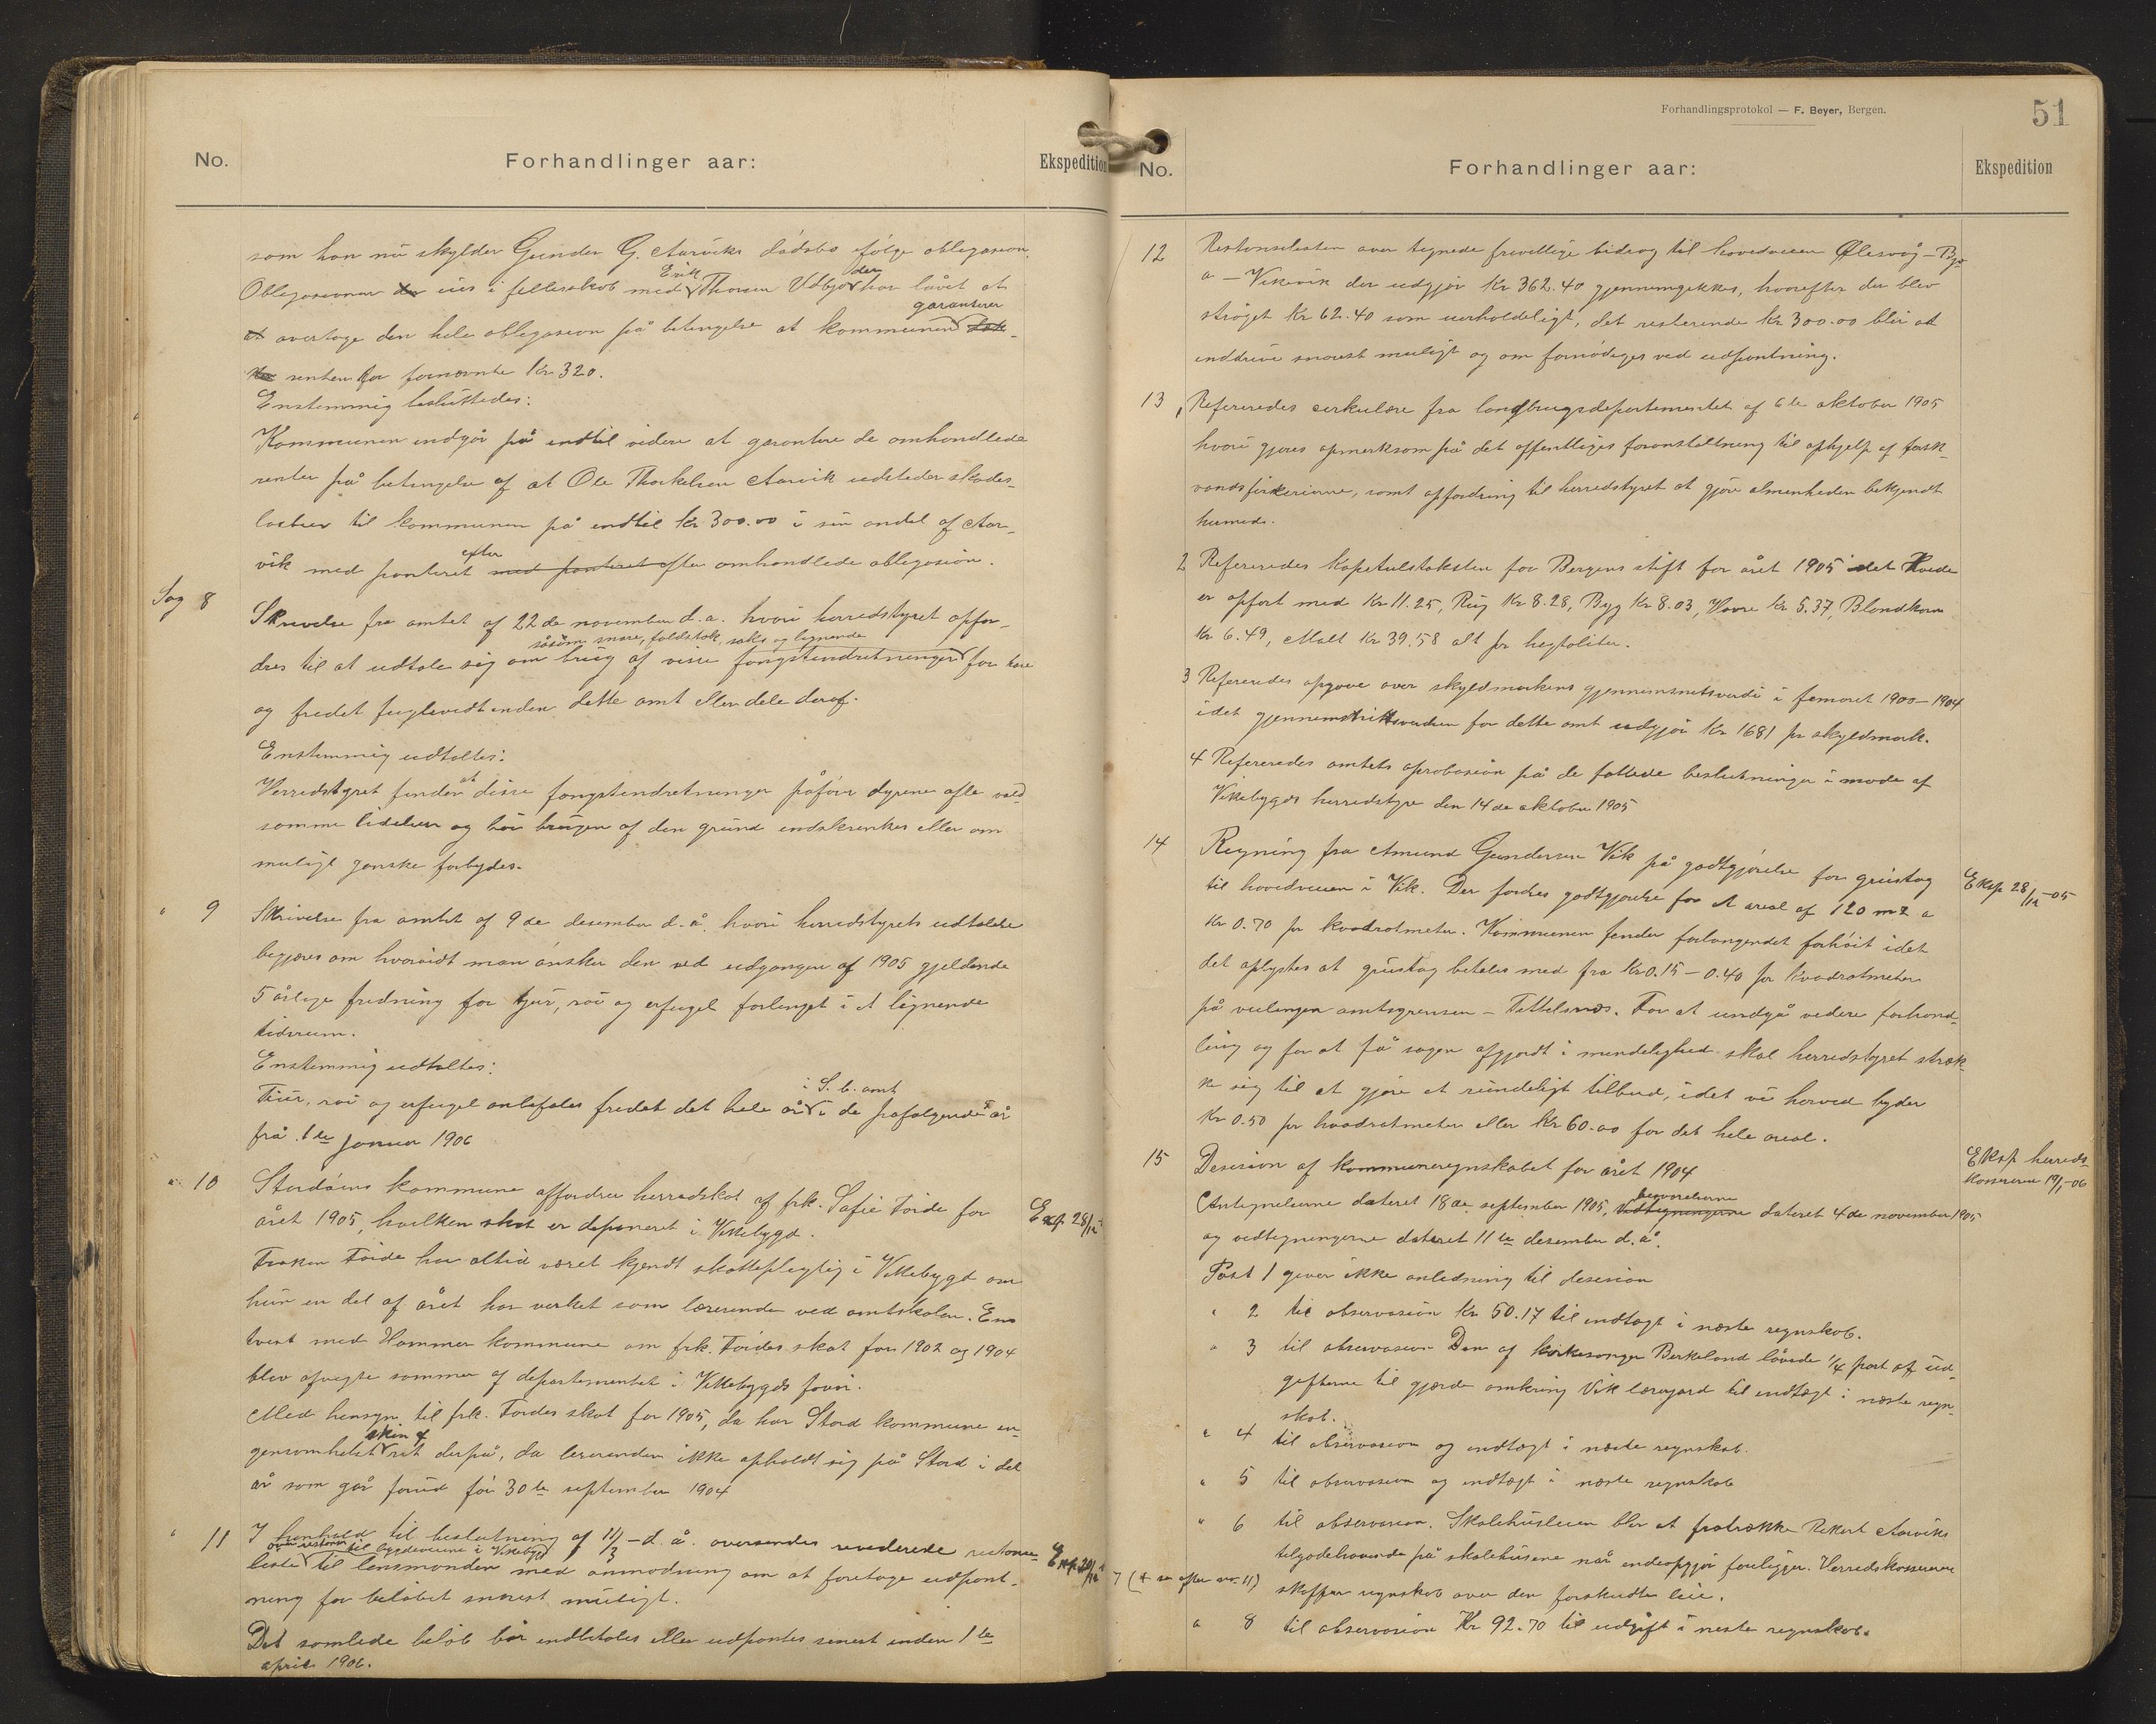 No.
Forhandlinger aar:
Ekspedition
som han nu skylder Gunder G. Aarviks dødsbo ifølge obligasion.
Obligasionen der eies i fellesskab med Erik Thorsen Udbjo der har låvet at
at overtage den hele obligasion på betingelse at kommunen garanterer
renten for fornævnte Kr 320.
Enstemmig besluttedes:
Kommunen indgår på indtil videre at garantere de omhandlede
renter på betingelse af at Ole Thorkelsen Aarvik udsteder skades-
løsbrev til kommunen på indtil kr 300.00 i sin andel af Aar-
vik med panteret efter med panteret efter omhandlede obligasion.
Sag 8
Skrivelse fra amtet af 22de november d.a. hvori herredstyret opfor-
såsom snare, foldstok, saks og lignende
dres til at udtale sig om brug af visse fangstindretninger for hare
og fredet fuglevildt inden dette amt eller dele deraf.
Enstemmig udtaltes:
Herredstyret finder at disse fangstindretninger påfører dyrene ofte vold-
somme lidelser og bør brugen af den grund indskrænkes eller om
muligt ganske forbydes.
" 9
Skrivelse fra amtet af 9de desember d.å. hvori herredstyrets udtalelse
begjæres om hvorvidt man ønsker den ved udgangen af 1905 gjeldende
5 årlige fredning for tjur, røi og erfugel forlenget i et lignende
tidsrum.
Enstemmig udtaltes:
Tiur, røi og erfugel anbefales fredet det hele år i S. b. amt i de påfølgende 5 år
frå 1ste januar 1906
" 10
Stordøens kommune affordrer herredskat af frk. Sofie Førde for
året 1905, hvilken skat er deponeret i Vikebygd.
Frøken Førde har altid været kjendt skattepligtig i Vikebygd om
hun en del af året har virket som lærerinde ved amtskolen. En
tvist med Hammer kommune om frk. Førdes skat for 1902 og 1904
blev afvigte sommer af departementet i Vikebygds favør.
Med hensyn til frk. Førdes skat for 1905, da har Stord kommune in-
gensomhelst skin af ret derpå, da lærerinden ikke opholdt sig på Stord i det
år som går forud for 30te september 1904
Eksp. 28/12
" 11
I henhold til beslutning af 11/3 - d.å. oversendes reviderede restanse-
over restanser til bygdeveiene i Vikebygd
liste til lensmanden med anmodning om at foretage udpant-
ning for beløbet snarest muligt.
Det samlede beløb bør indbetales eller udpantes senest inden 1ste
april 1906.
Eksp. 28/12
Forhandlingsprotokol — F. Beyer, Bergen.
51
No.
Forhandlinger aar:
Ekspedition
12
Restanselisten over tegnede frivillige bidrag til hovedveien Ølesvåg - Bjo-
a - Vikevik der udgjør Kr 362.40 gjennemgikkes, hvorefter der blev
strøget Kr 62.40 som uerholdeligt, det resterende Kr 300.00 blir at
inddrive snarest muligt og om fornødiges ved udpantning.
13
1 Refereredes cirkulære fra landbrugsdepartementet af 6te oktober 1905
hvori gjøres opmerksom på det offentliges foranstaltning til ophjelp af fersk-
vandsfiskerierne, samt opfordring til herredstyret at gjøre almenheden bekjendt
hermed.
2 Refereredes kapitulstaksten for Bergens stift for året 1905 idet Hvede
er opført med Kr 11.25, Rug Kr 8.28, Byg Kr 8.03, Havre kr 5.37, Blandkorn
Kr 6.49, Malt Kr 39.58 alt pr hegtoliter.
3 Refereredes opgave over skyldmarkens gjennemsnitsverdi i femåret 1900-1904
idet gjennemsnitsverdien for dette amt udgjør Kr 1681 pr skyldmark.
4 Refereredes amtets aprobasion på de fattede beslutninger i møde af
Vikebygds herredstyre den 14de oktober 1905
14
Regning fra Amund Gundersen Vik på godtgjørelse for grustag
til hovedveien i Vik. Der fordres godtgjørelse for et areal af 120 m2 a
Kr 0.70 pr kvadratmeter. Kommunen finder forlangendet forhøit idet
det oplystes at grustag betales med fra Kr 0.15 - 0.40 pr kvadratmeter
på veilengen amtsgrensen - Tittelsnes. For at undgå videre forhand-
ling og for at få sagen afgjordt i mindelighed skal herredstyret strek-
ke sig til at gjøre et rundeligt tilbud, idet vi herved byder
Kr 0.50 pr kvadratmeter eller Kr 60.00 for det hele areal.
Eksp 28/12-05
15
Desision af kommuneregnskabet for året 1904
Antegnelserne dateret 18de september 1905, besvarelserne dateret 4de november 1905
og vedtegningerne dateret 11te desember d.å.
Eksp herreds-
kassereren 19/1-06
Post 1 giver ikke anledning til desision
" 2 til observasion Kr 50.17 til indtægt i næste regnskab.
" 3 til observasion Den af kirkesanger Berkeland låvede 1/4 part af ud-
gifterne til gjerde omkring Vik læregard til indtægt i næste regn-
skab.
" 4 til observasion og indtægt i næste regnskab.
" 5 til observasion og indtægt i næste regnskab
" 6 til observasion. Skolehusleien blir at fratrække Rikert Aarviks
tilgodehavende på skolehusene når endeopgjør foreligger. Herredskassereren
7 (4 se efter no. 11)
skaffer regnskab over den forskudte leie.
" 8 til observasion Kr 92.70 til udgift i neste regnskab.